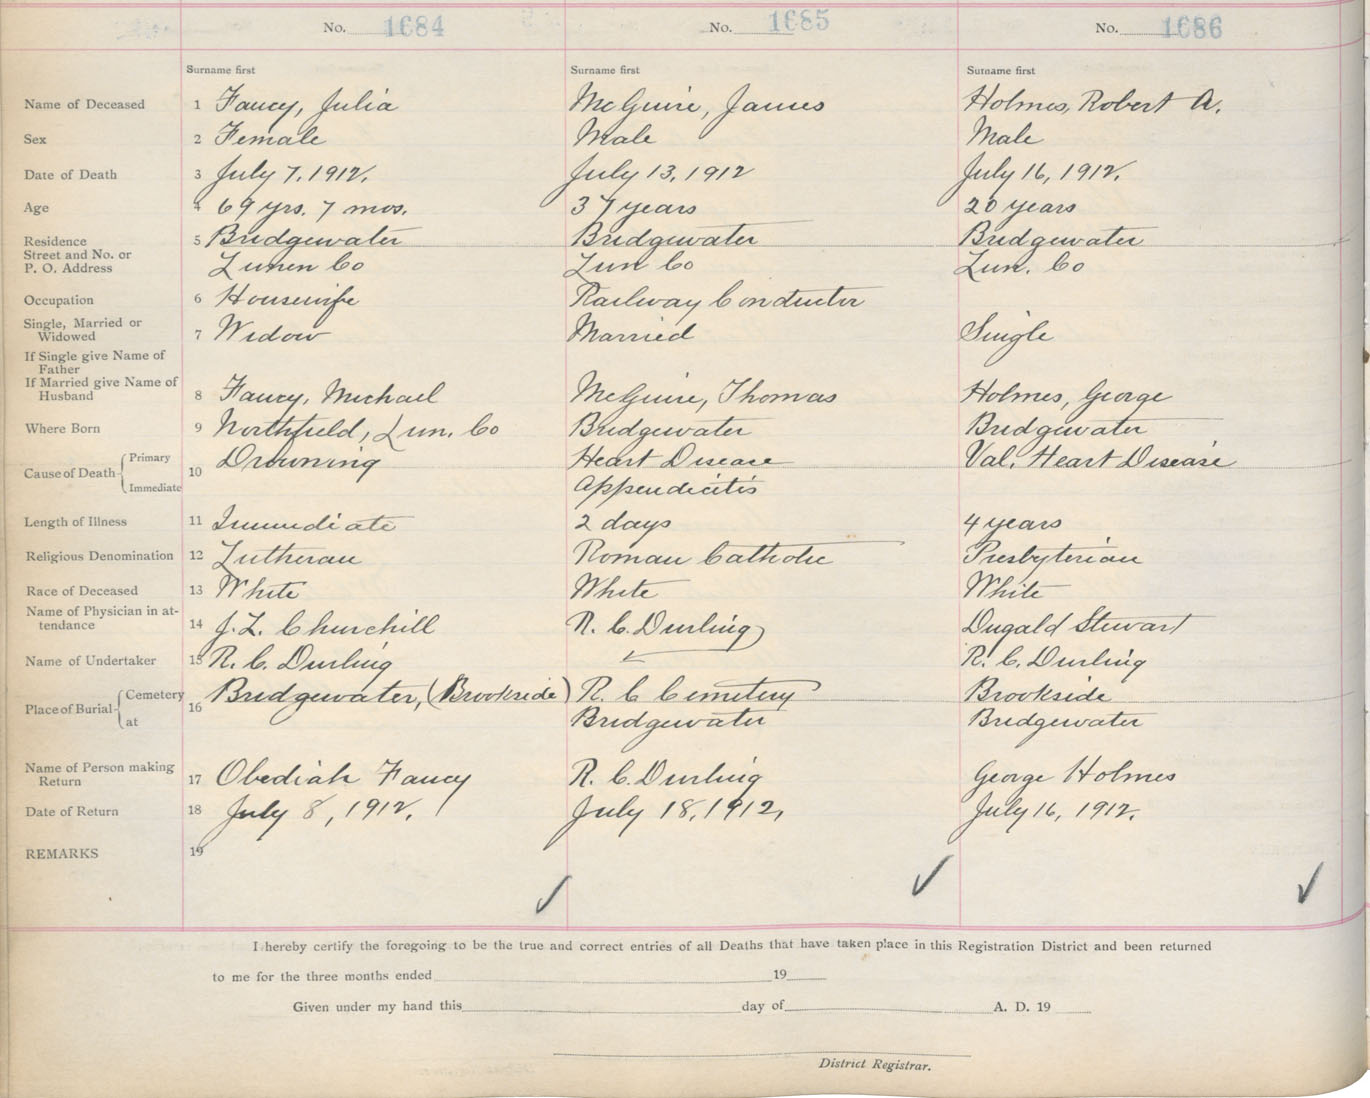 No. 1684 No. 1685 No. 1686
Surname first Surname first Surname first
Name of Deceased 1 Faucy, Julia McGuire, James Holmes, Robert A.
Sex 2 Female Male Male
Date of Death 3 July 7, 1912. July 13, 1912 July 16, 1912.
Age 4 69 yrs. 7 mos. 37 years 20 years
Residence 5 Bridgewater Bridgewater Bridgewater
Street and No. or
P. O. Address Lunen Co Lun Co Lun. Co
Occupation 6 Housewife Railway Conductor
Single, Married or
Widowed 7 Widow Married Single
If Single give Name of
Father
If Married give Name of
Husband 8 Faucy, Michael McGuire, Thomas Holmes, George
Where Born 9 Northfield, Lun. Co Bridgewater Bridgewater
Cause of Death Primary 10 Drowning Heart Disease Val. Heart Disease
Immediate Appendicitis
Length of Illness 11 Immediate 2 days 4 years
Religious Denomination 12 Lutheran Roman Catholic Presbyterian
Race of Deceased 13 White White White
Name of Physician in at-
tendance 14 J. L. Churchill R. C. Durling Dugald Stewart
Name of Undertaker 15 R. C. Durling R. C. Durling
Place of Burial Cemetery 16 Bridgewater, (Brookside) R. C Cemetery Brookside
at Bridgewater Bridgewater
Name of Person making
Return 17 Obediah Faucy R. C. Durling George Holmes
Date of Return 18 July 8, 1912. July 18, 1912, July 16, 1912.
REMARKS 19
I hereby certify the foregoing to be the true and correct entries of all Deaths that have taken place in this Registration District and been returned
to me for the three months ended 19
Given under my hand this day of A. D. 19
District Registrar.